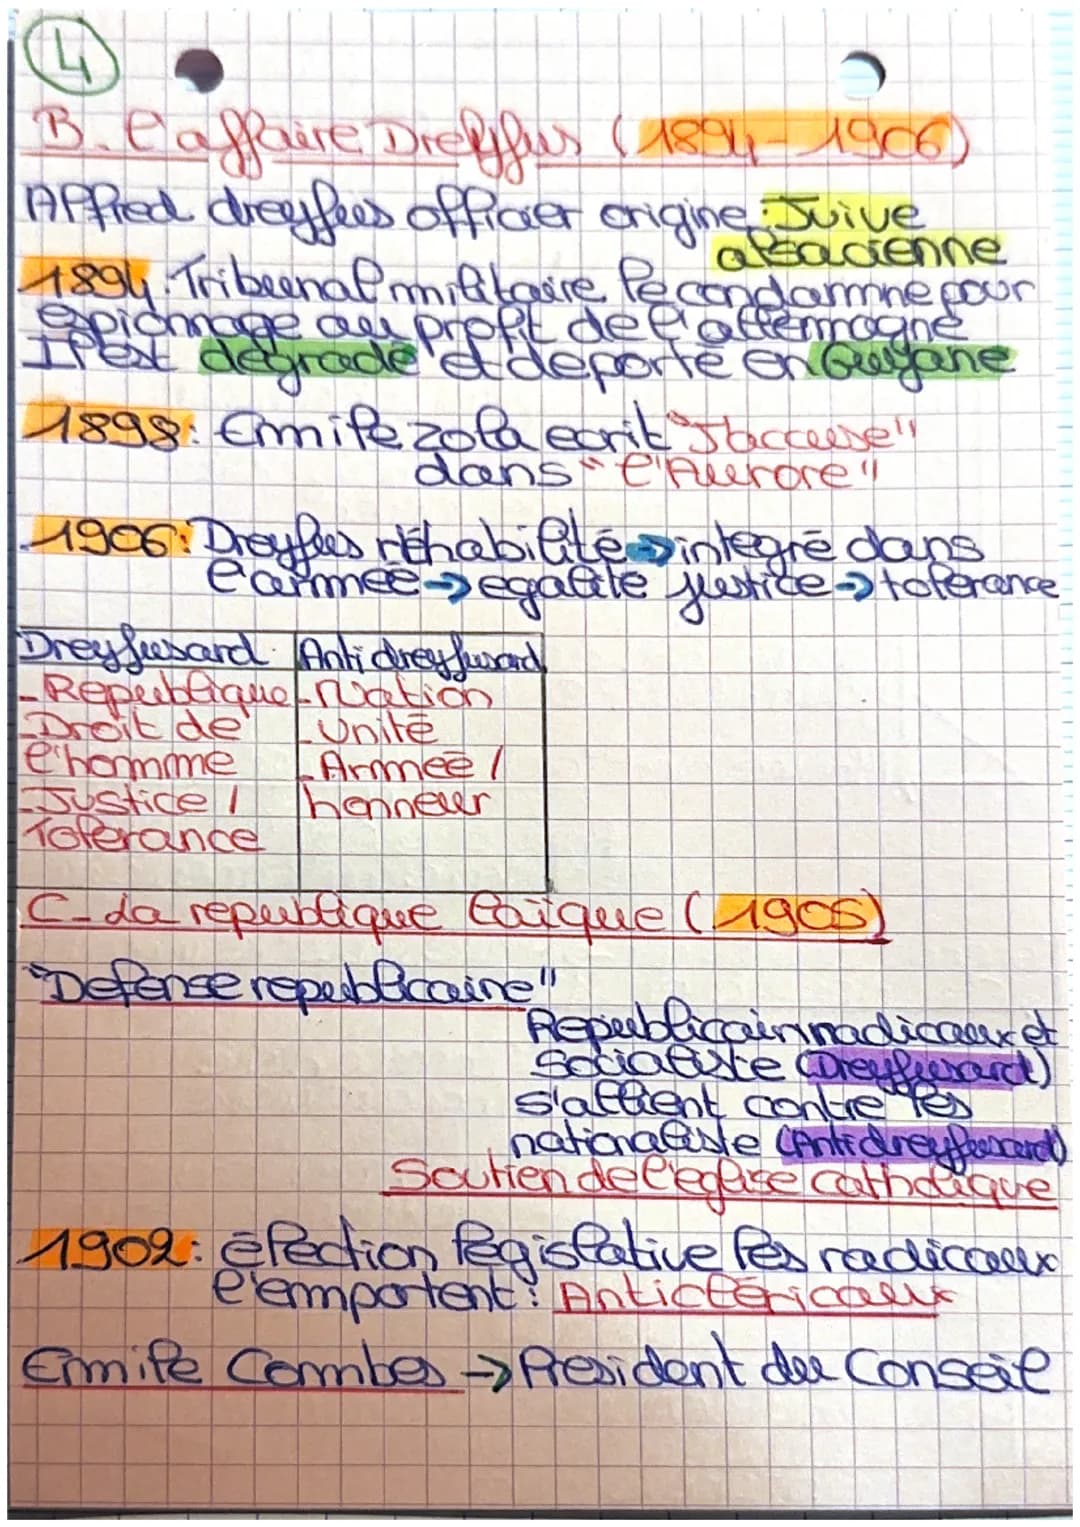 4
B. l'affaire Dreyfus (1894-1906)
Alfred dreyfus officier origine: Juive
alsacienne
1894. Tribunal militaire le condamne pour
espionnage au profit de l'allemagne
Il est dégradé et deporté en Guyane
1898: Emile zola ecrit "J'accuse"
dans "l'Aurore"
1906: Dreyfus réhabilité → integré dans
l'armée → egalité justice → tolerance
Dreyfusard Antidreyfusard
- Republique - Nation
- Droit de - Unité
l'homme - Armée /
- Justice / honneur
Tolérance
C- La republique laïque (1905)
"Defense republicaine"
Republicain radicaux et
socialiste (Dreyfusard)
s'allient contre les
nationaliste (Antidreyfusard)
Soutien de l'eglise catholique
1902: élection législative les radicaux
l'emportent: Anticléricaux
Emile Combes → President du Conseil